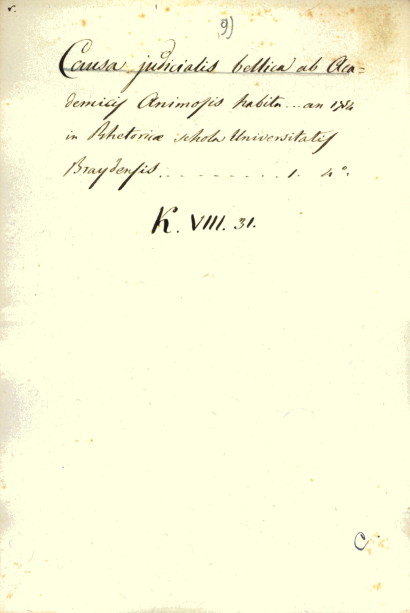 9)
Causa judicialis bellica ab Aca=
demicis Animosis habita ... an 1784
in Rhetoricæ schola Universitatis
Braydensis . . . . . . . . . . 1. 4°.
K. VIII. 31.
C